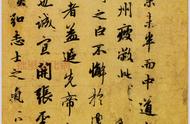 未半而中道
州疲敝此
之臣不懈於
者蓋追先帝
也誠宜開張聖
弘志士之氣